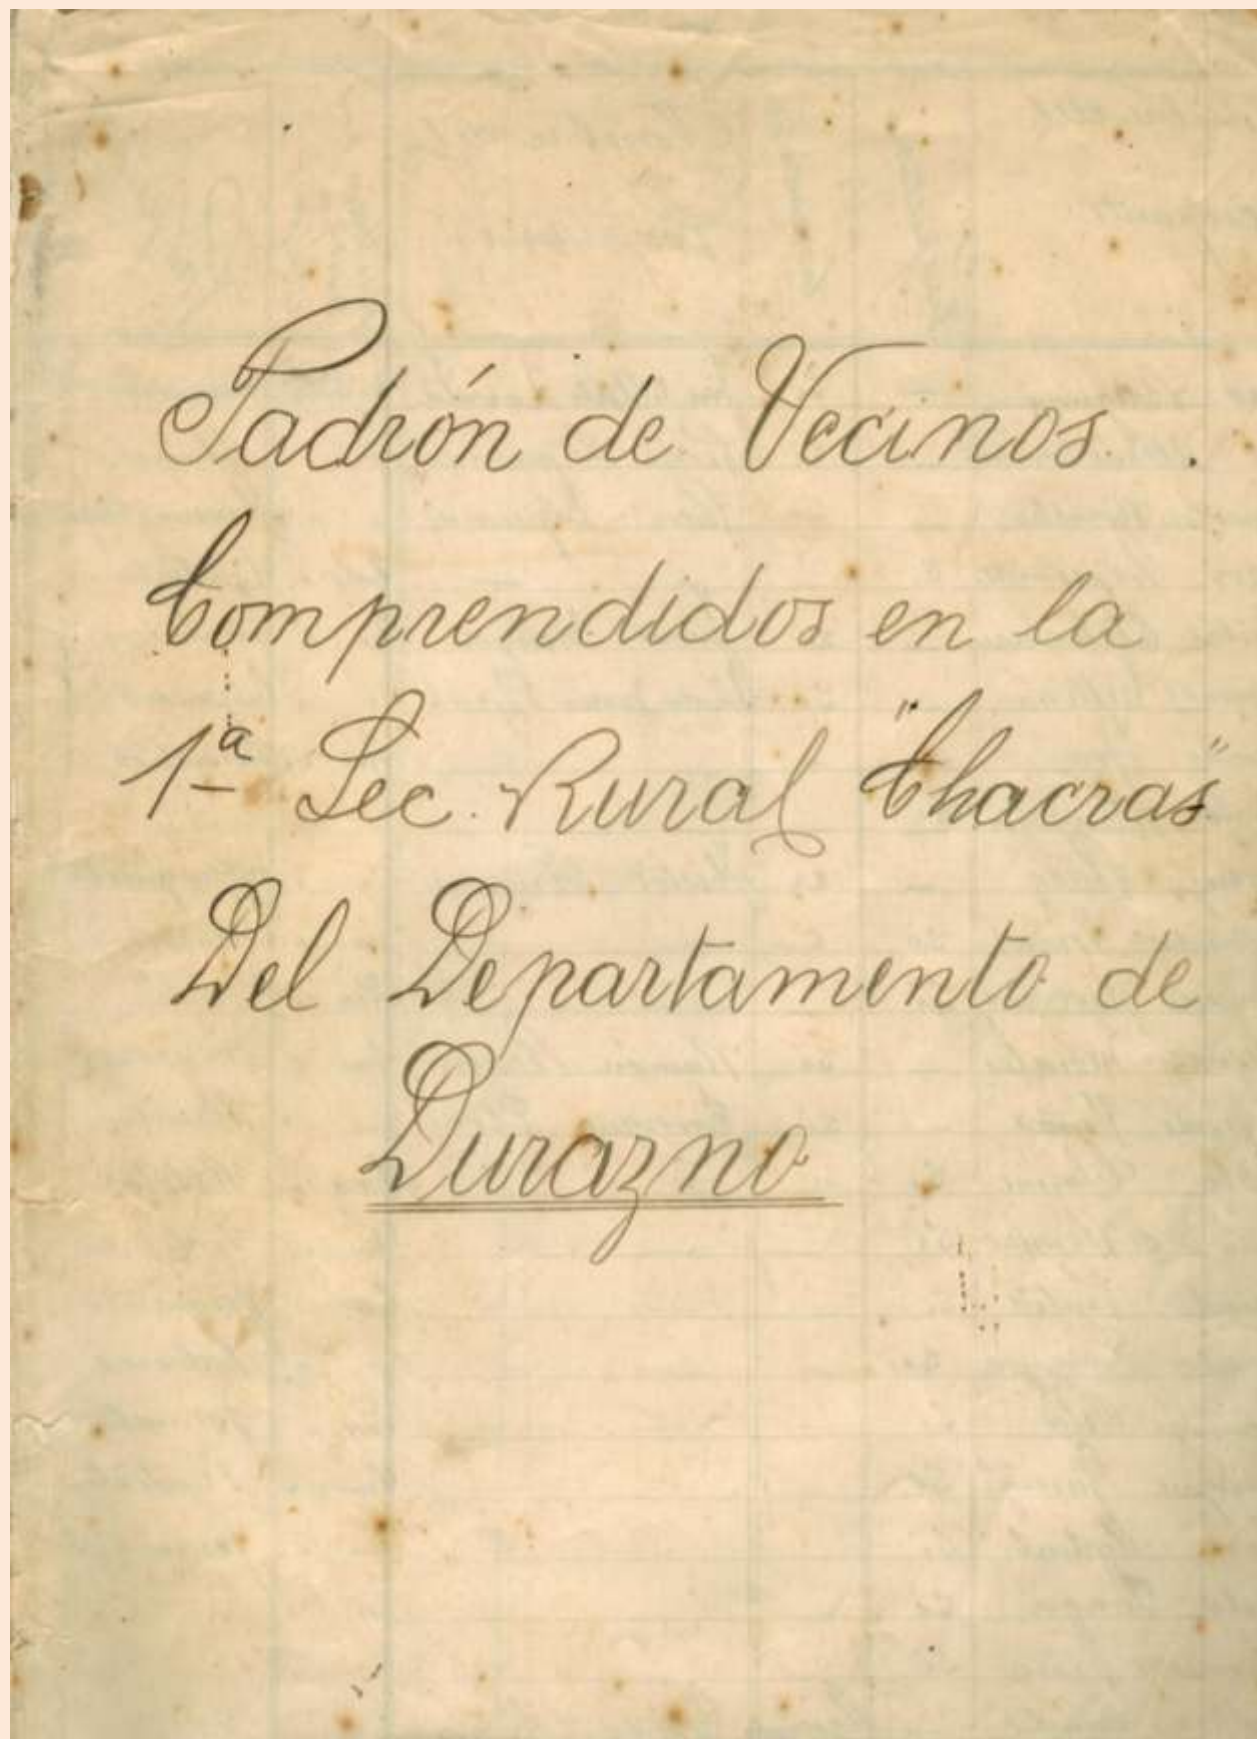 Padrón de Vecinos.
Comprendidos en la
1ª Sec. Rural "Chacras"
Del Departamento de
Durazno